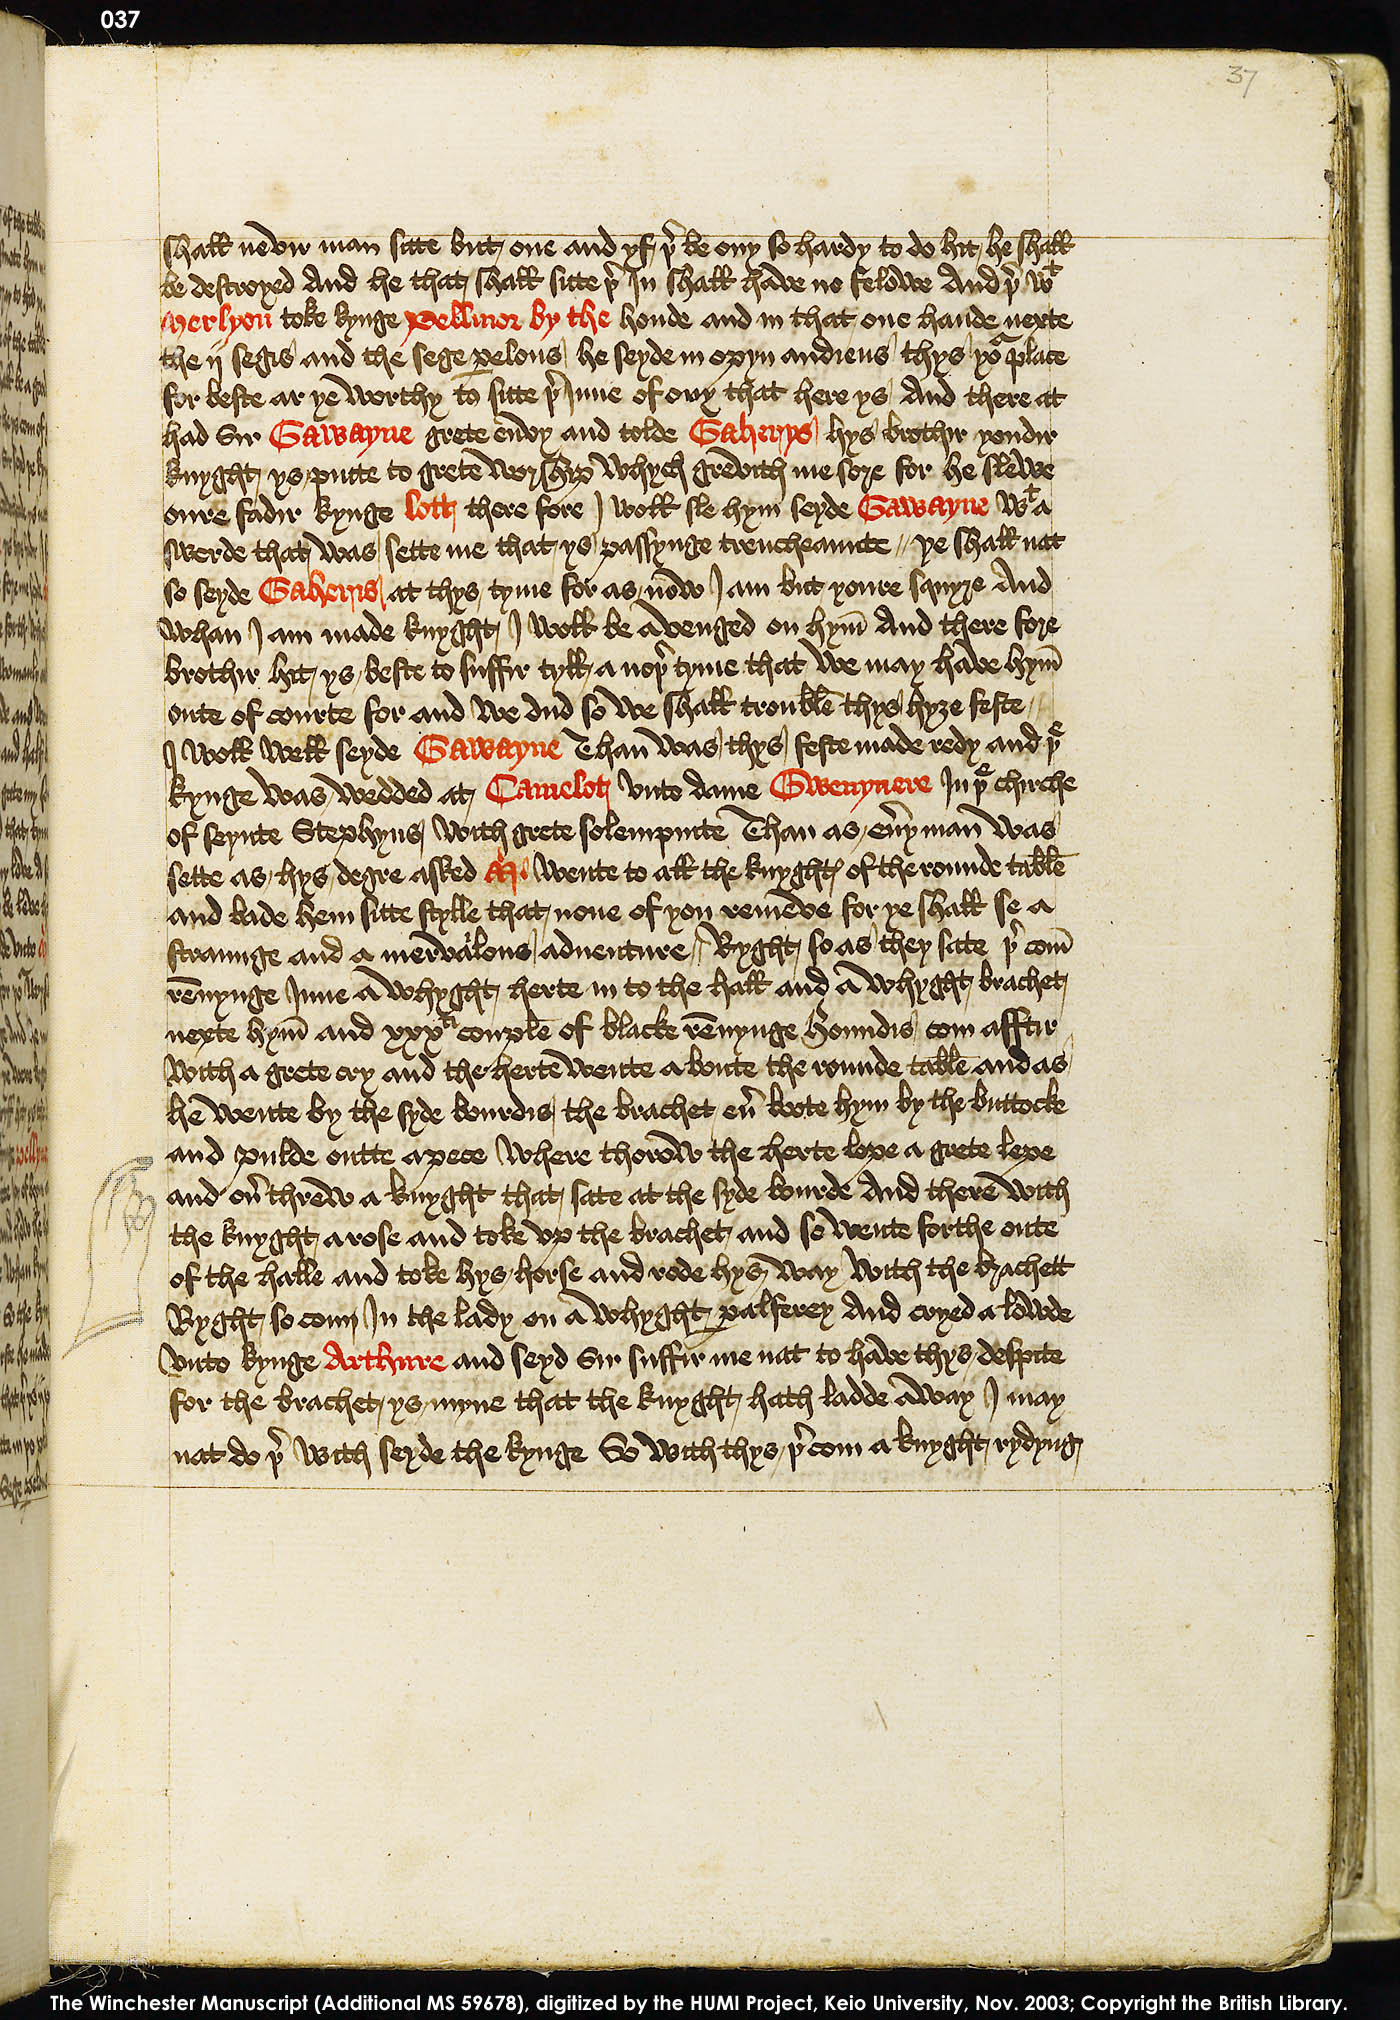 037
37
shall nevir man sitte but one and yf þr be ony so hardy to do hit he shall
be destroyed And he that shall sitte þr In shall have no felowe And þr wt
Merlyon toke kynge Pellinor by the honde and in that one hande nexte
the ij segis and the sege pelous he seyde in opyn audiens thys yor place
for beste ar ye worthy to sitte þr Inne of ony that here ys And there at
had Sir Gawayne grete envy and tolde Gaherys hys brothir yondir
knyght ys putte to grete worshyp whych grevith me sore for he slewe
oure fadir kynge lott there fore I woll sle hym seyde Gawayne wt a
swerde that was sette me that ys passynge trencheaunte // ye shall nat
so seyde Gaherys at thys tyme for as now I am but youre squyre And
whan I am made knyght I woll be avenged on hym And there fore
brothir hit ys beste to suffir tyll a noþr tyme that we may have hym
oute of courte for and we dud so we shall trouble thys hyze feste //
I woll well seyde Gawayne Than was thys feste made redy and þe
kynge was wedded at Camelot unto dame Gwenyvere In þe chirche
of seynte Stephyns with grete solempnite Than as evry man was
sette as hys degre asked Mr wente to all the knyghts of the rounde table
and bade hem sitte stylle that none of you remeve for ye shall se a
straunge and a mervalous adventure // Ryght so as they sate þr com
rennynge Inne a whyght herte in to the hall and a whyght brachet
nexte hym and xxxti couple of blacke rennynge houndis com afftir
with a grete cry and the herte wente a boute the rounde table and as
he wente by the syde bourdis the brachet evr boote hym by the buttocke
and pulde outte a pece where thorow the herte lope a grete lepe
and ovr threw a knyght that sate at the syde bourde And there with
the knyght arose and toke up the brachet and so wente forthe oute
of the halle and toke hys horse and rode hys way with the brachett
Ryght so com In the lady on a whyght palferey And cryed a lowde
unto kynge Arthure and seyd Sir suffir me nat to have thys despite
for the brachet ys myne that the knyght hath ladde away I may
nat do þr with seyde the kynge So with thys þr com a knyght rydyng
The Winchester Manuscript (Additional MS 59678), digitized by the HUMI Project, Keio University, Nov. 2003; Copyright the British Library.